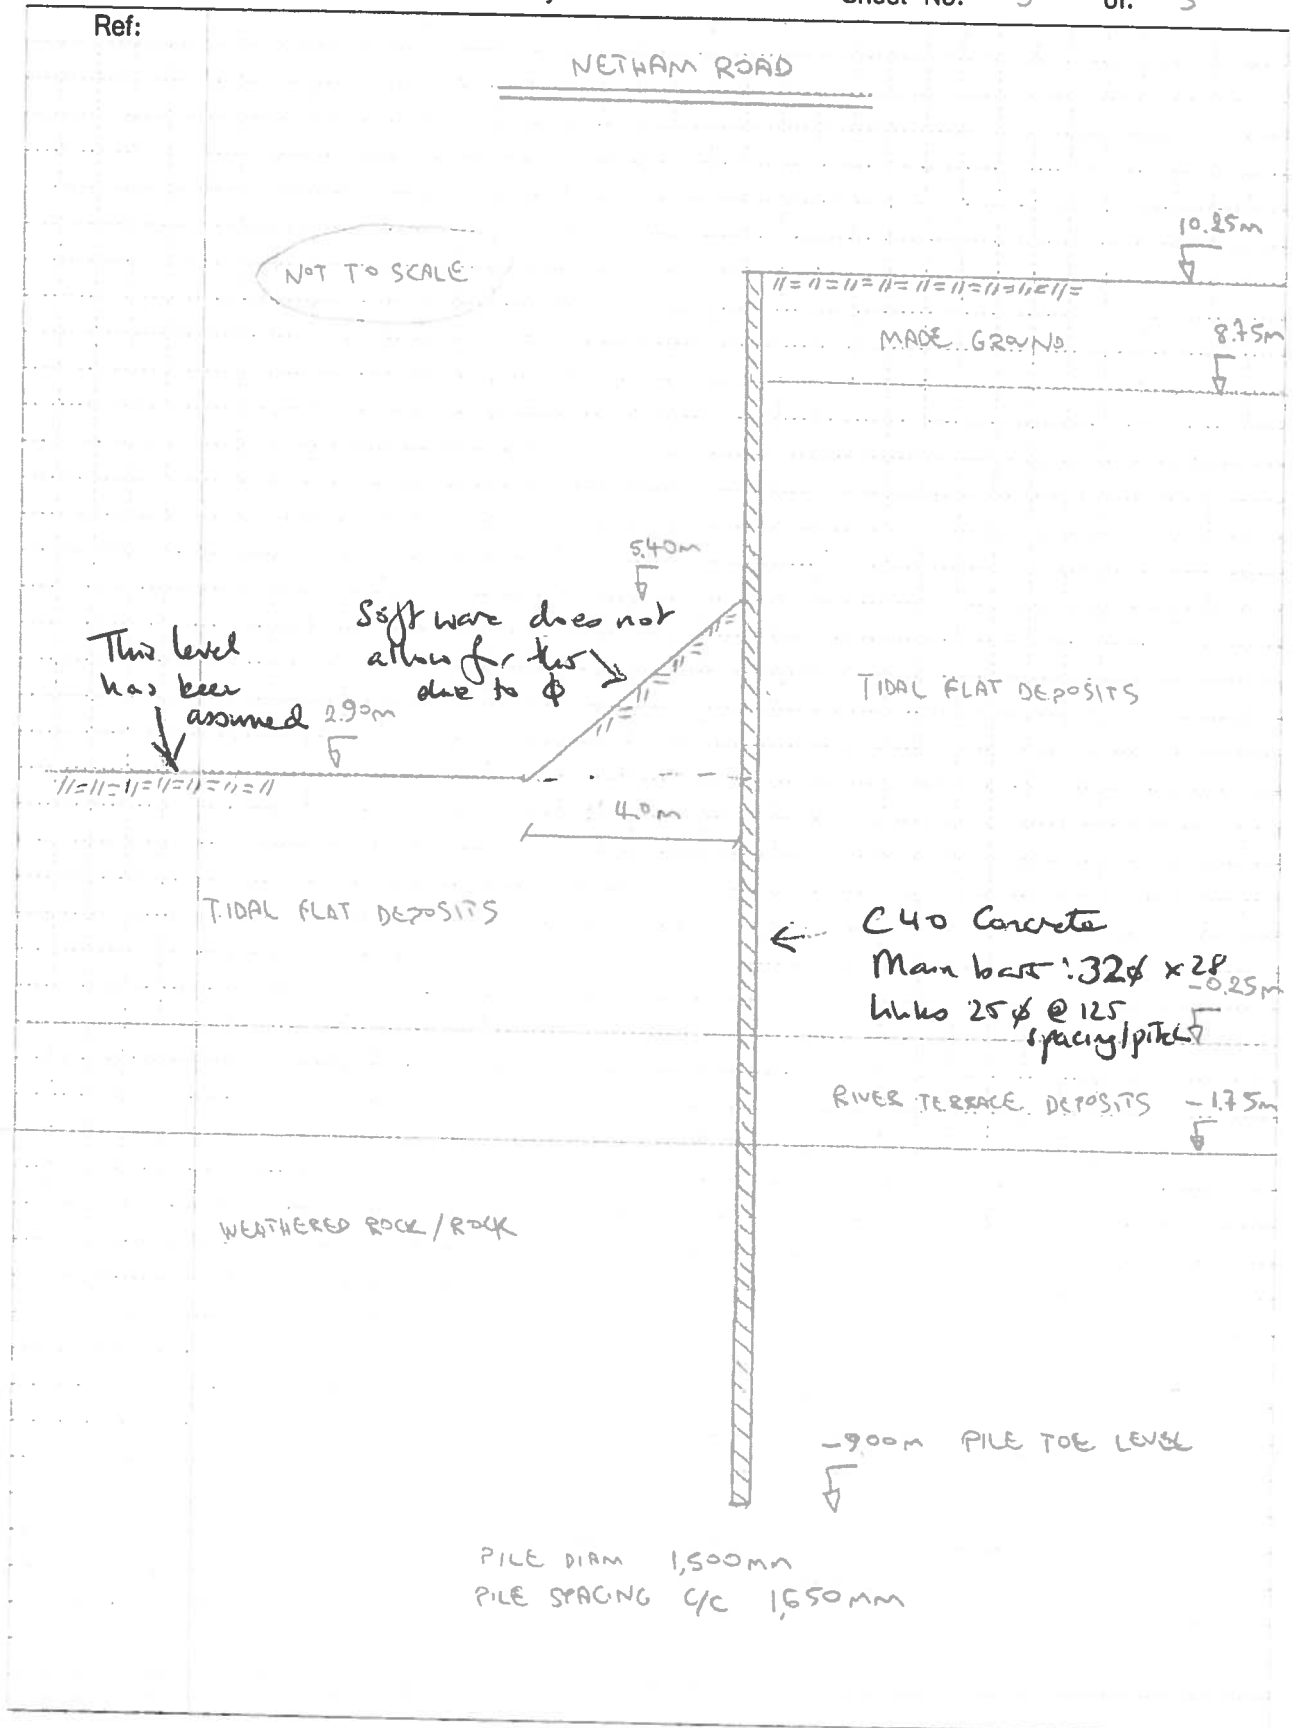 Sheet No. 5 of. 5
Ref:
NETHAM ROAD
10.25m
NOT TO SCALE
MADE GROUND
8.75m
5.40m
Software does not
allow for this
due to φ
This level
has been
assumed
2.90m
TIDAL FLAT DEPOSITS
4.0m
TIDAL FLAT DEPOSITS
C40 Concrete
Main bars : 32φ x 28
-0.25m
Links 25φ @ 125
spacing/pitch
RIVER TERRACE DEPOSITS -1.75m
WEATHERED ROCK / ROCK
-9.00m PILE TOE LEVEL
PILE DIAM 1,500mm
PILE SPACING C/C 1,650mm